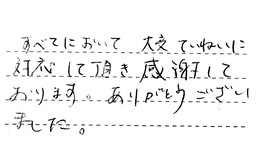 すべてにおいて 大変 ていねいに
対応して頂き 感謝して
おります。ありがとうござい
ました。